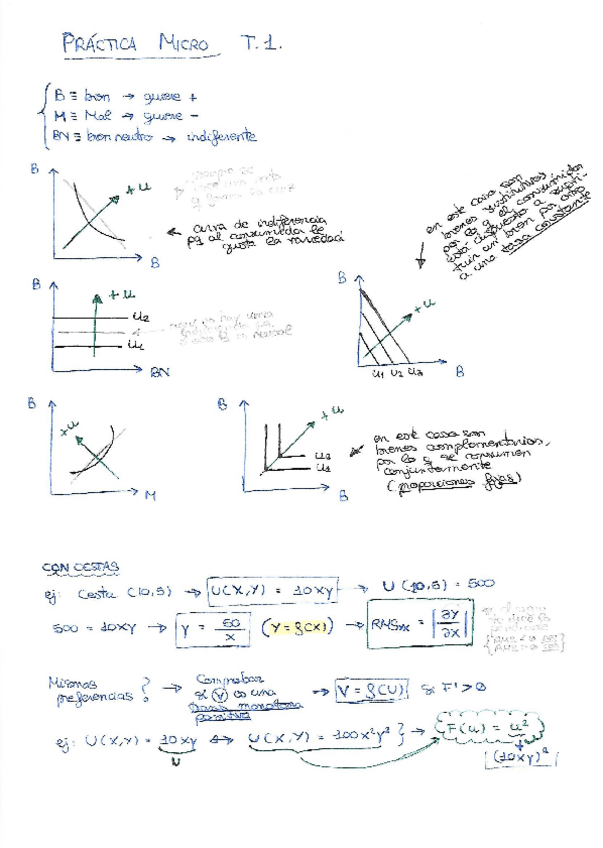 PRÁCTICA MICRO T.1.
B ≡ bien → quiere +
M ≡ Mal → quiere -
BN ≡ bien neutro → indiferente
B
+ u
B
← curva de indiferencia
pq al consumidor le
gusta la variedad
en este caso son
bienes sustitutivos
por lo q el consumidor
está dispuesto a susti-
tuir un bien por otro
a una tasa constante
B
+ u
u2
u1
BN
B
+ u
u1 u2 u3
B
B
+u
M
B
+ u
u2
u1
B
en este caso son
bienes complementarios,
por lo q se consumen
conjuntamente
(proporciones fijas)
CON CESTAS
ej: Cesta (10,5) → U(X,Y) = 10xy → U (10,5) = 500
500 = 10xy → y = 50/x (Y = f(x)) → = |∂Y/∂X|
Mismas
preferencias? → Comprobar
si V es una
monótona
positiva → V = f(U) si F' > 0
ej: U(X,Y) = 10xy ↔ U(X,Y) = 100x²y² } → F(u) = u²
U
(10xy)²